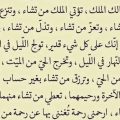 الك الملك ، تؤتي الملك من تشاء ، وتنزع
ن تشاء ، وتعزّ من تشاء ، وتذلّ من تشاء ،
إنّك على كل شيء قدير ، تولج الليل في
النّهار في الليل ، وتخرج الحيّ من الميّت ،
من الحيّ ، وترزق من تشاء بغير حساب
الآخرة ورحيمهما ، تعطي من تشاء منهما
اء ، ارحمني رحمة تغنني بها عن رحمة